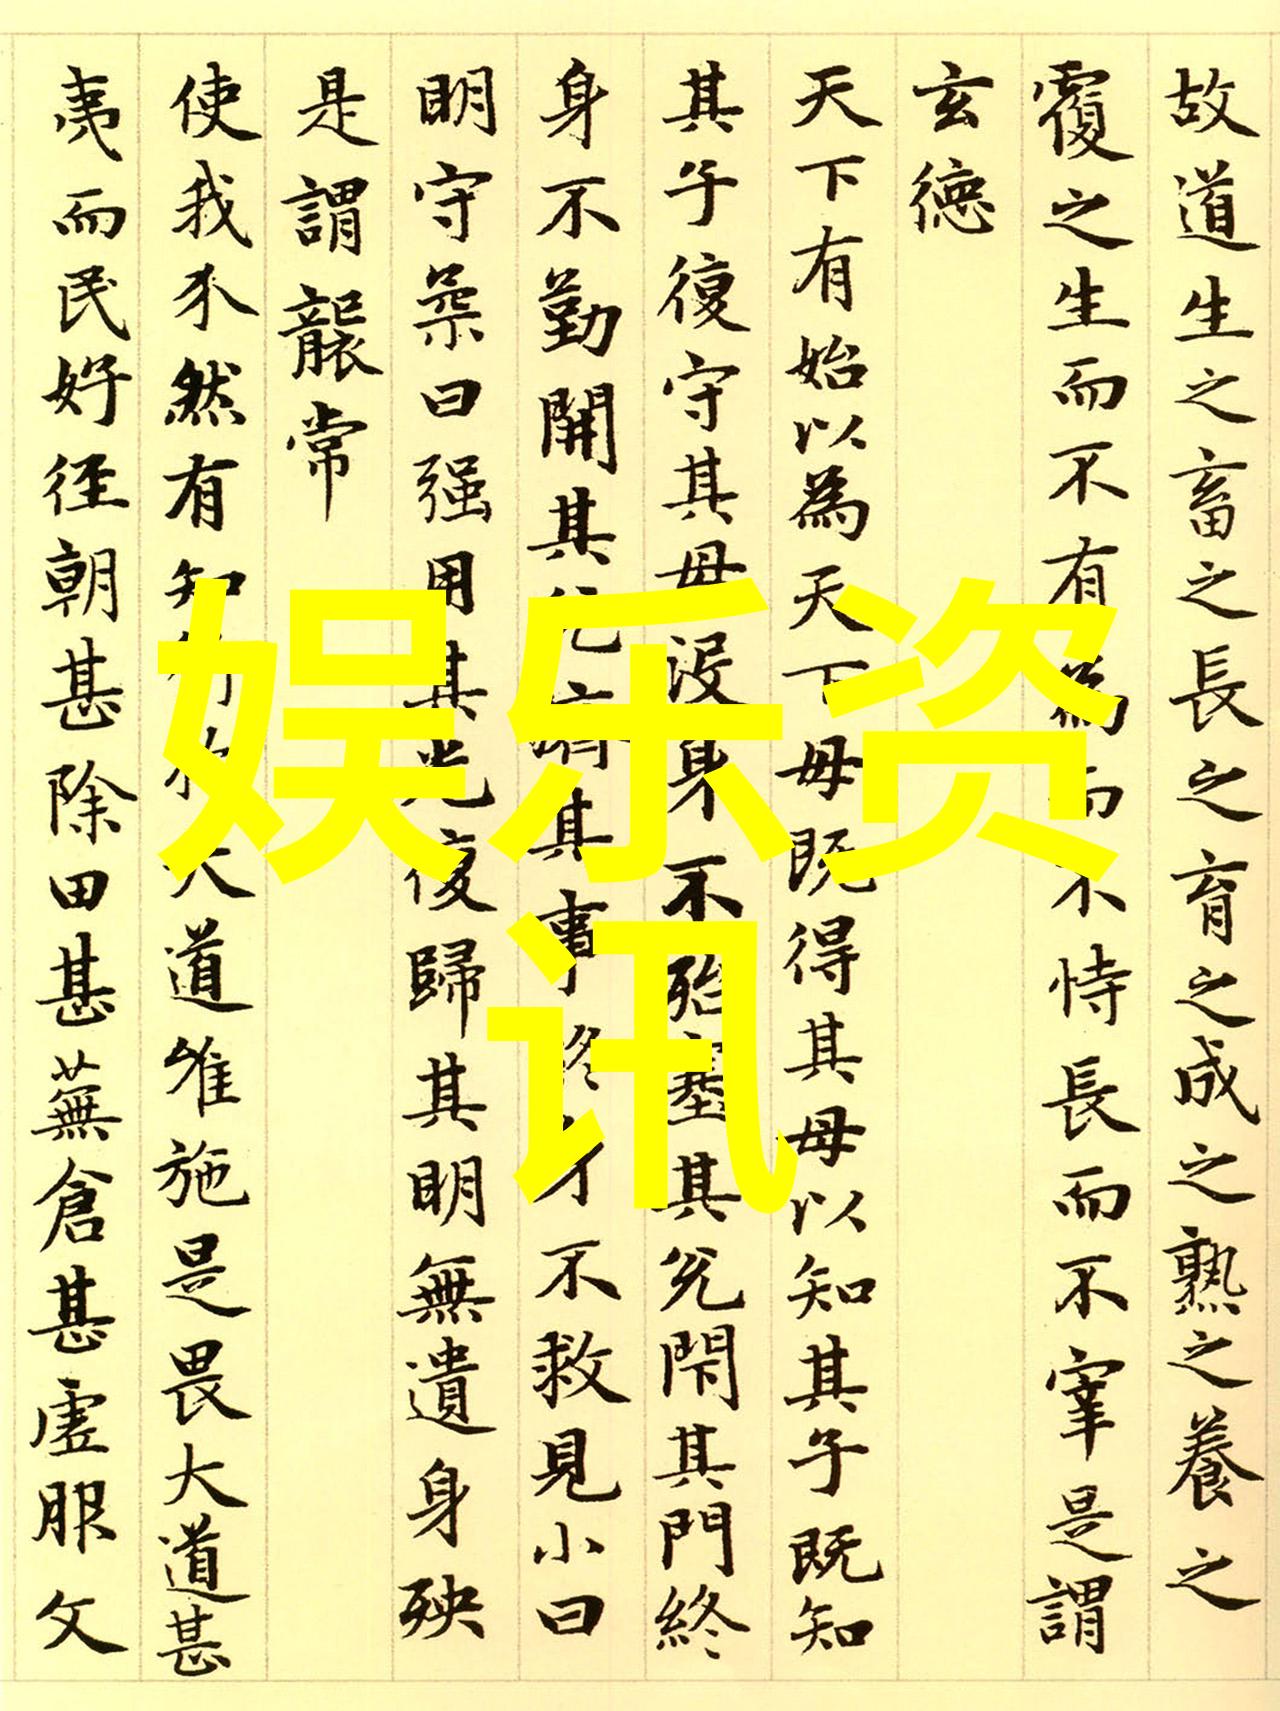 故道生之畜之長之育之成之熟之養之
覆之生而不有為而不恃長而不宰是謂
玄德
天下有始以為天下母既得其母以知其子既知
其子復守其母沒身不殆塞其兌閇其門終
身不勤開其兌濟其事終身不救見小曰
明守柔曰强用其光復歸其明無遺身殃
是謂襲常
使我介然有知行於大道唯施是畏大道甚
夷而民好徑朝甚除田甚蕪倉甚虛服文
娱乐资
讯